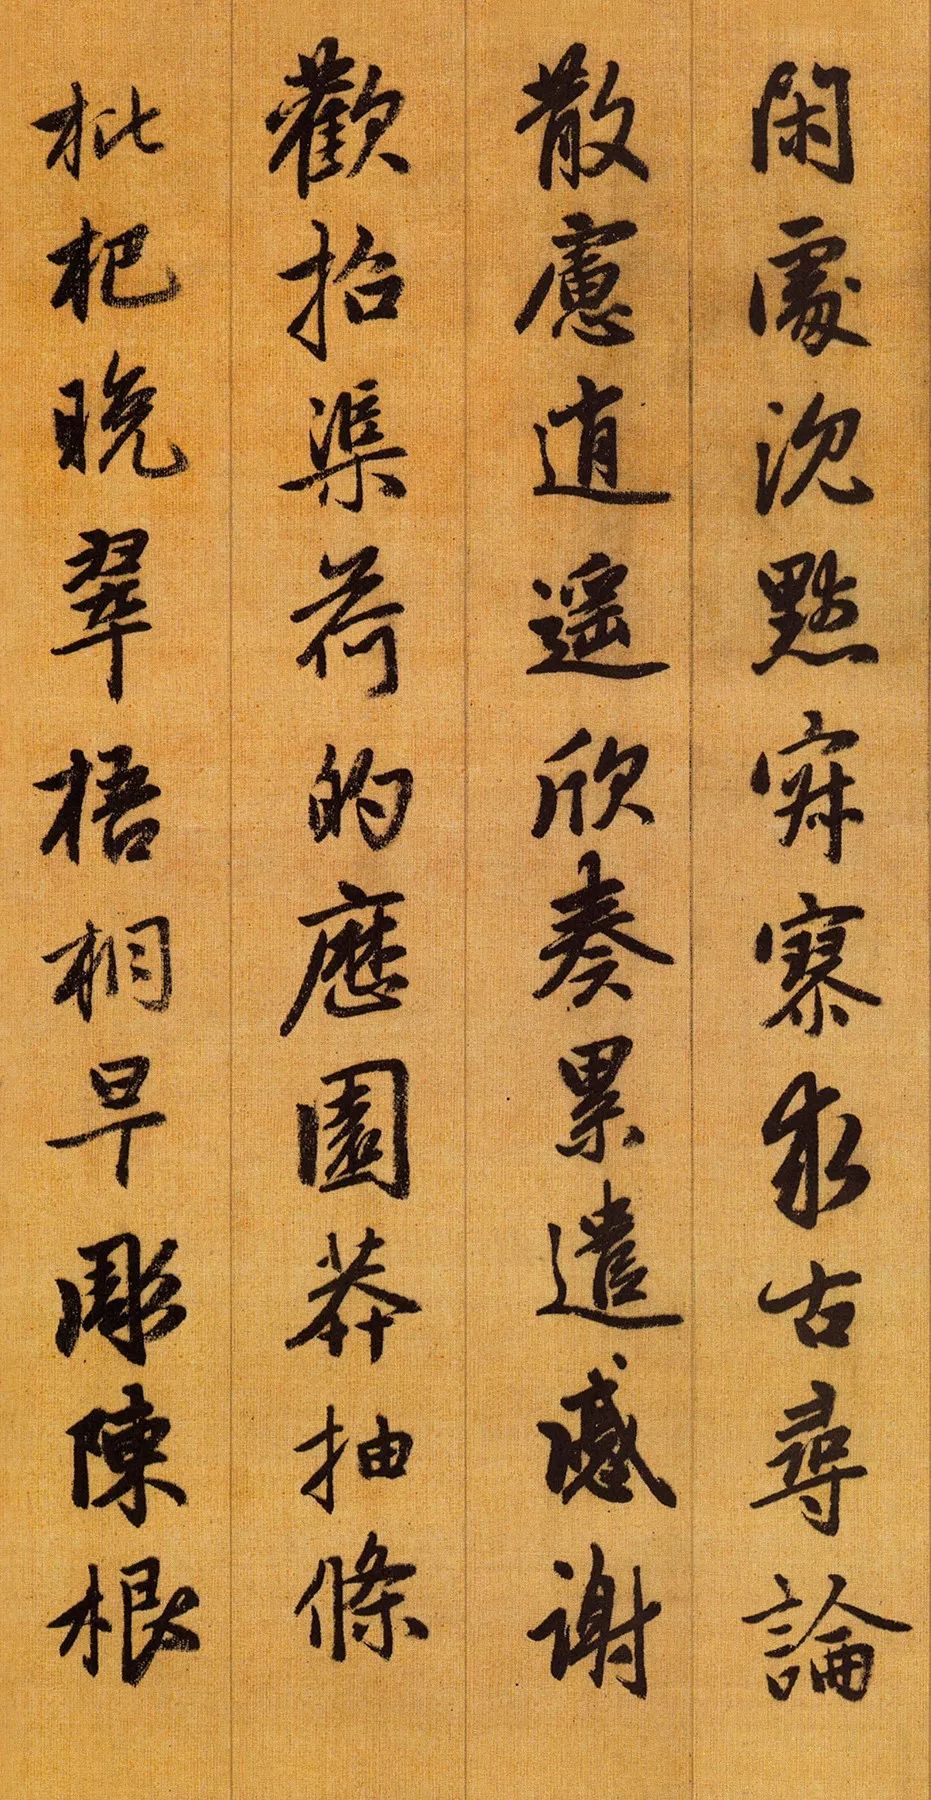 閑處沉默寂寥求古尋論
散慮逍遙欣奏累遣慼謝
歡招渠荷的歷園莽抽條
枇杷晚翠梧桐早彫陳根